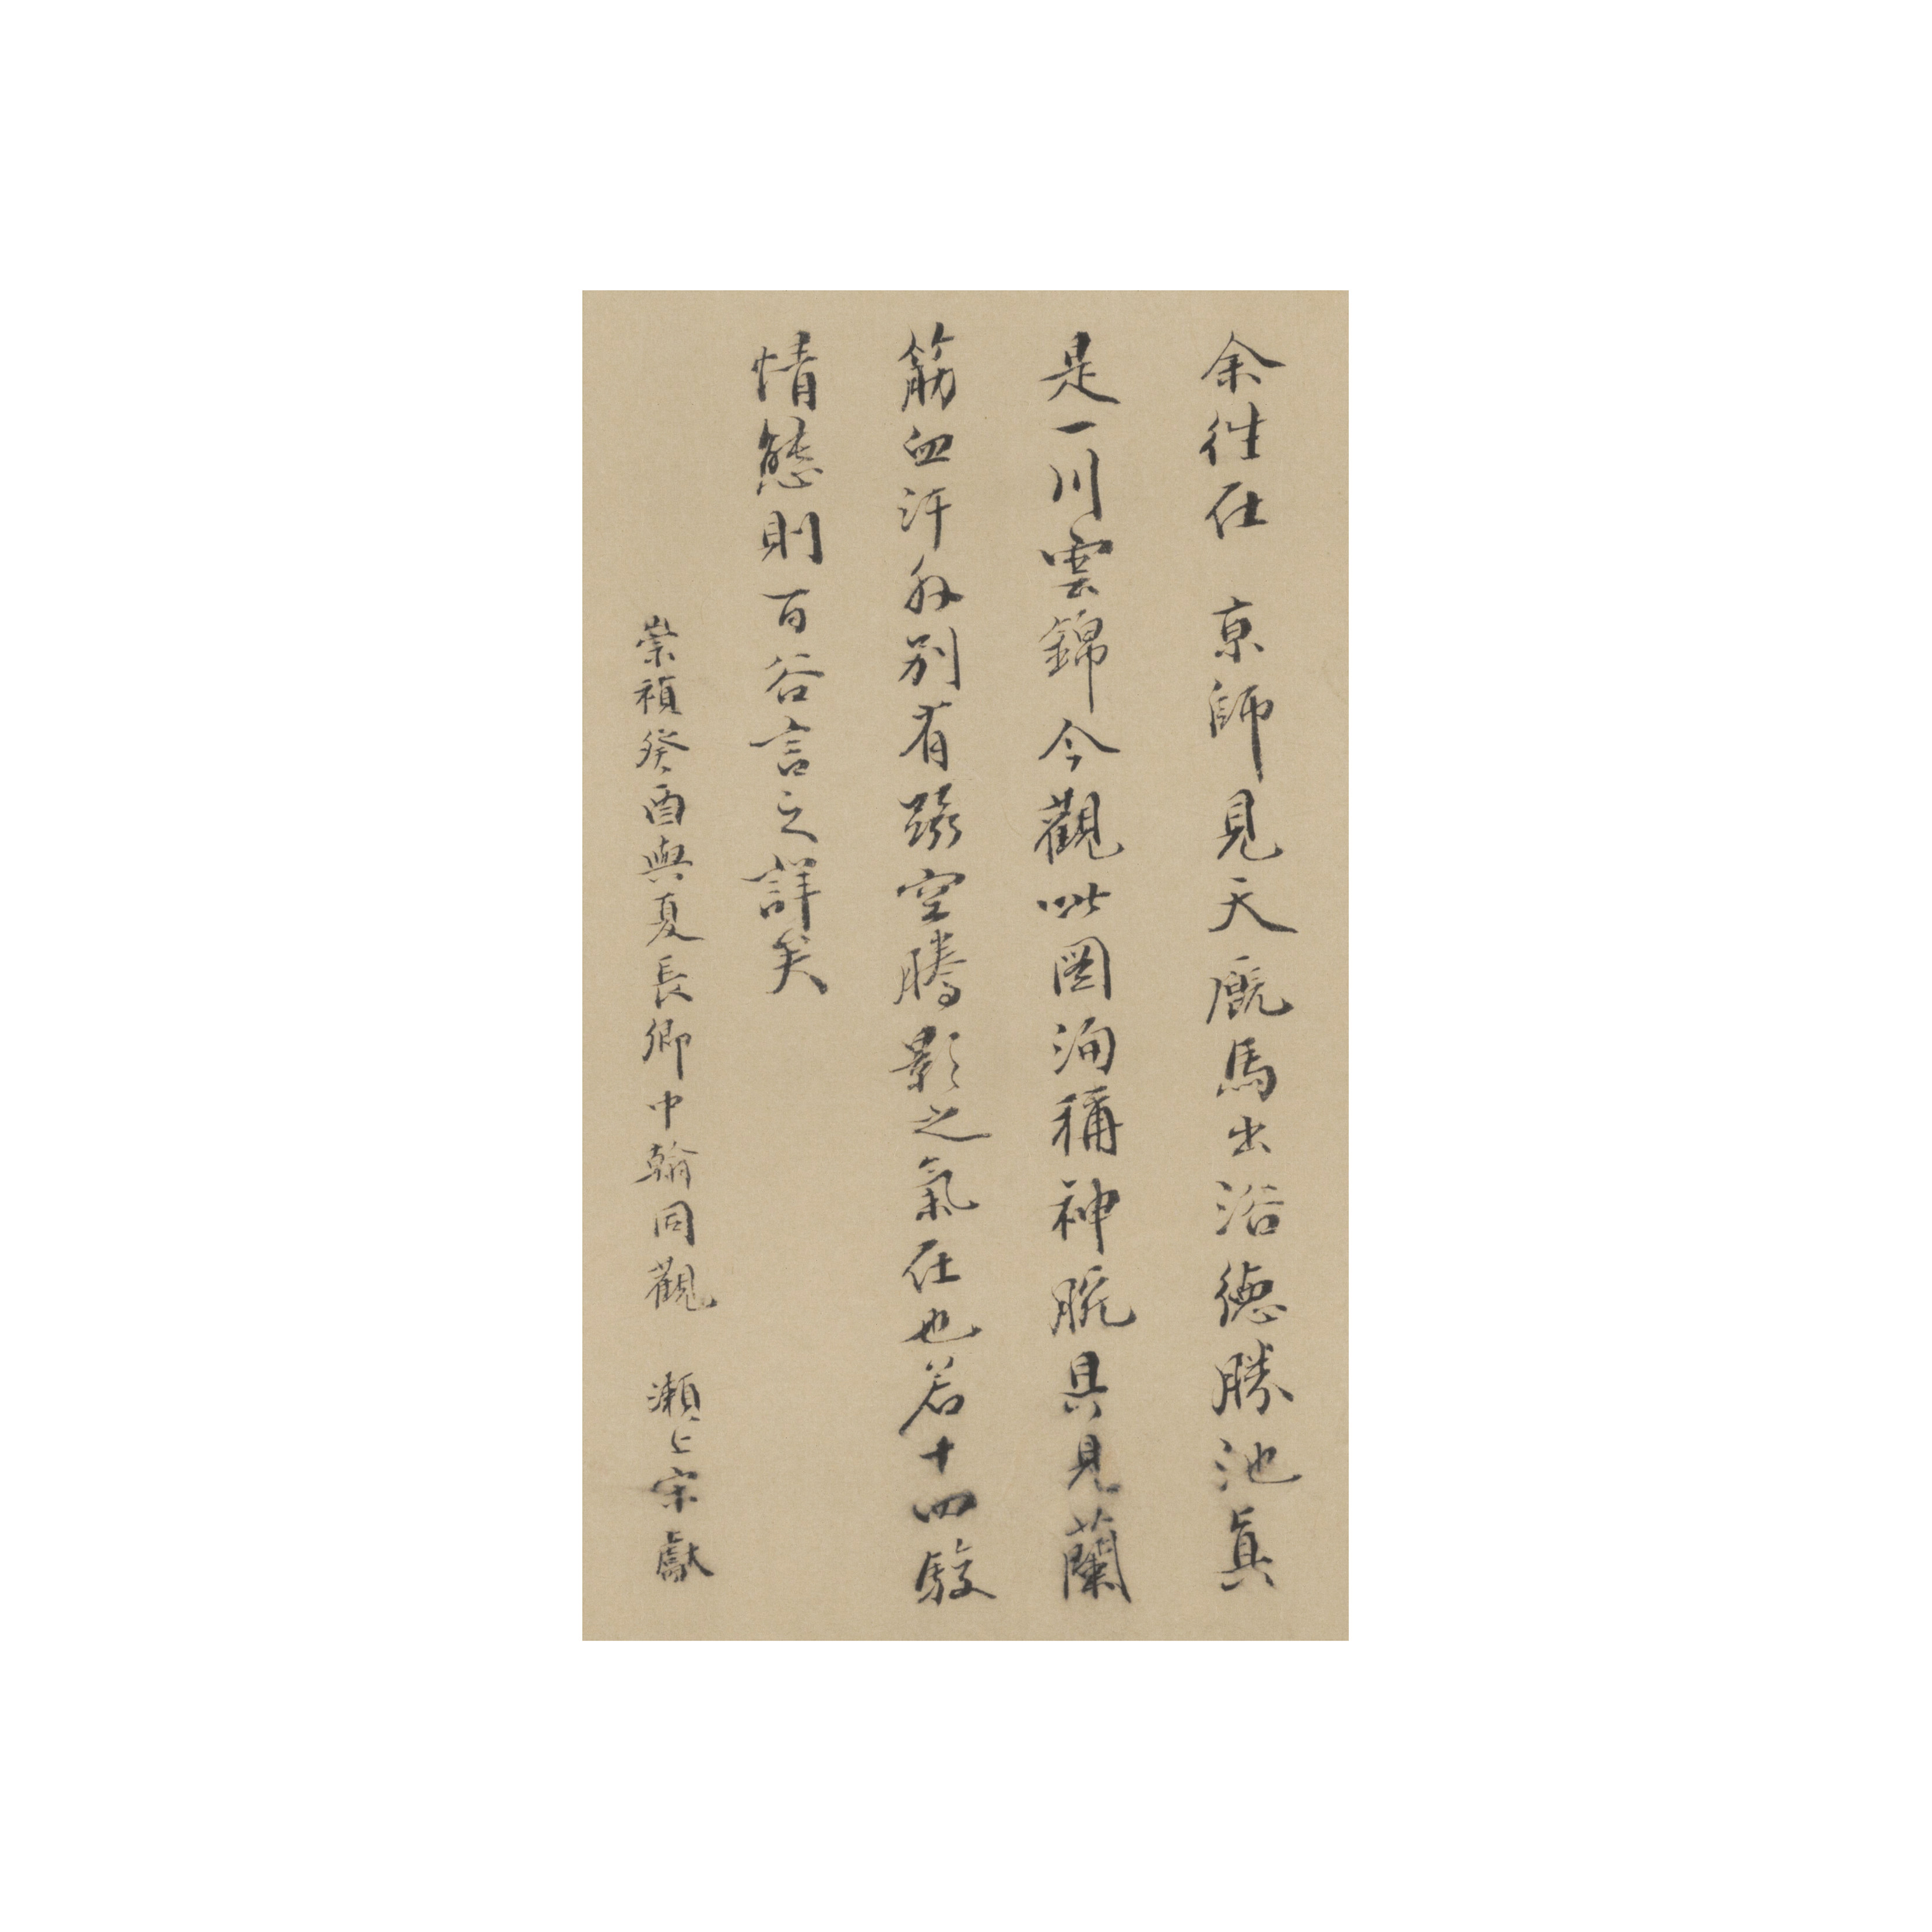 余往在 京師見天廄馬出浴德勝池真
是一川雲錦今觀此圖洵稱神腕具見蘭
筋血汗外別有躡空騰影之氣在也若十四駿
情態則百谷言之詳矣
崇禎癸酉與夏長卿中翰同觀 瀨上宋獻